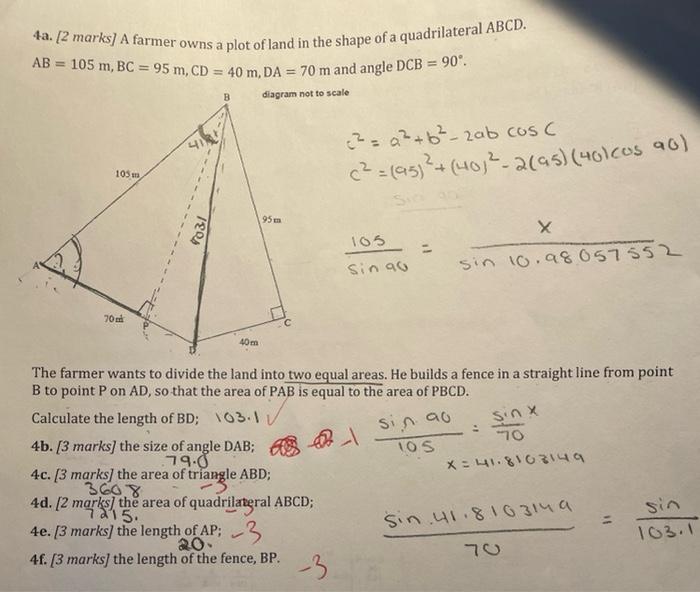 4a. [2 marks] A farmer owns a plot of land in the shape of a quadrilateral ABCD.
AB = 105 m, BC = 95 m, CD = 40 m, DA = 70 m and angle DCB = 90°.
diagram not to scale
B
41.8
105 m
95 m
1031
A
?
70 m
P
D
C
40 m
c² = a² + b² - 2ab cos C
c² = (95)² + (40)² - 2(95)(40) cos 90)
sin 90
105 / sin 90 = x / sin 10.98057552
The farmer wants to divide the land into two equal areas. He builds a fence in a straight line from point
B to point P on AD, so that the area of PAB is equal to the area of PBCD.
Calculate the length of BD; 103.1 ✓
sin 90 / 105 = sin x / 70
x = 41.8103149
4b. [3 marks] the size of angle DAB; -1
79.0
4c. [3 marks] the area of triangle ABD; -3
3608
4d. [2 marks] the area of quadrilateral ABCD; -3
7215.
4e. [3 marks] the length of AP; -3
20.
4f. [3 marks] the length of the fence, BP. -3
sin 41.8103149 / 70 = sin / 103.1